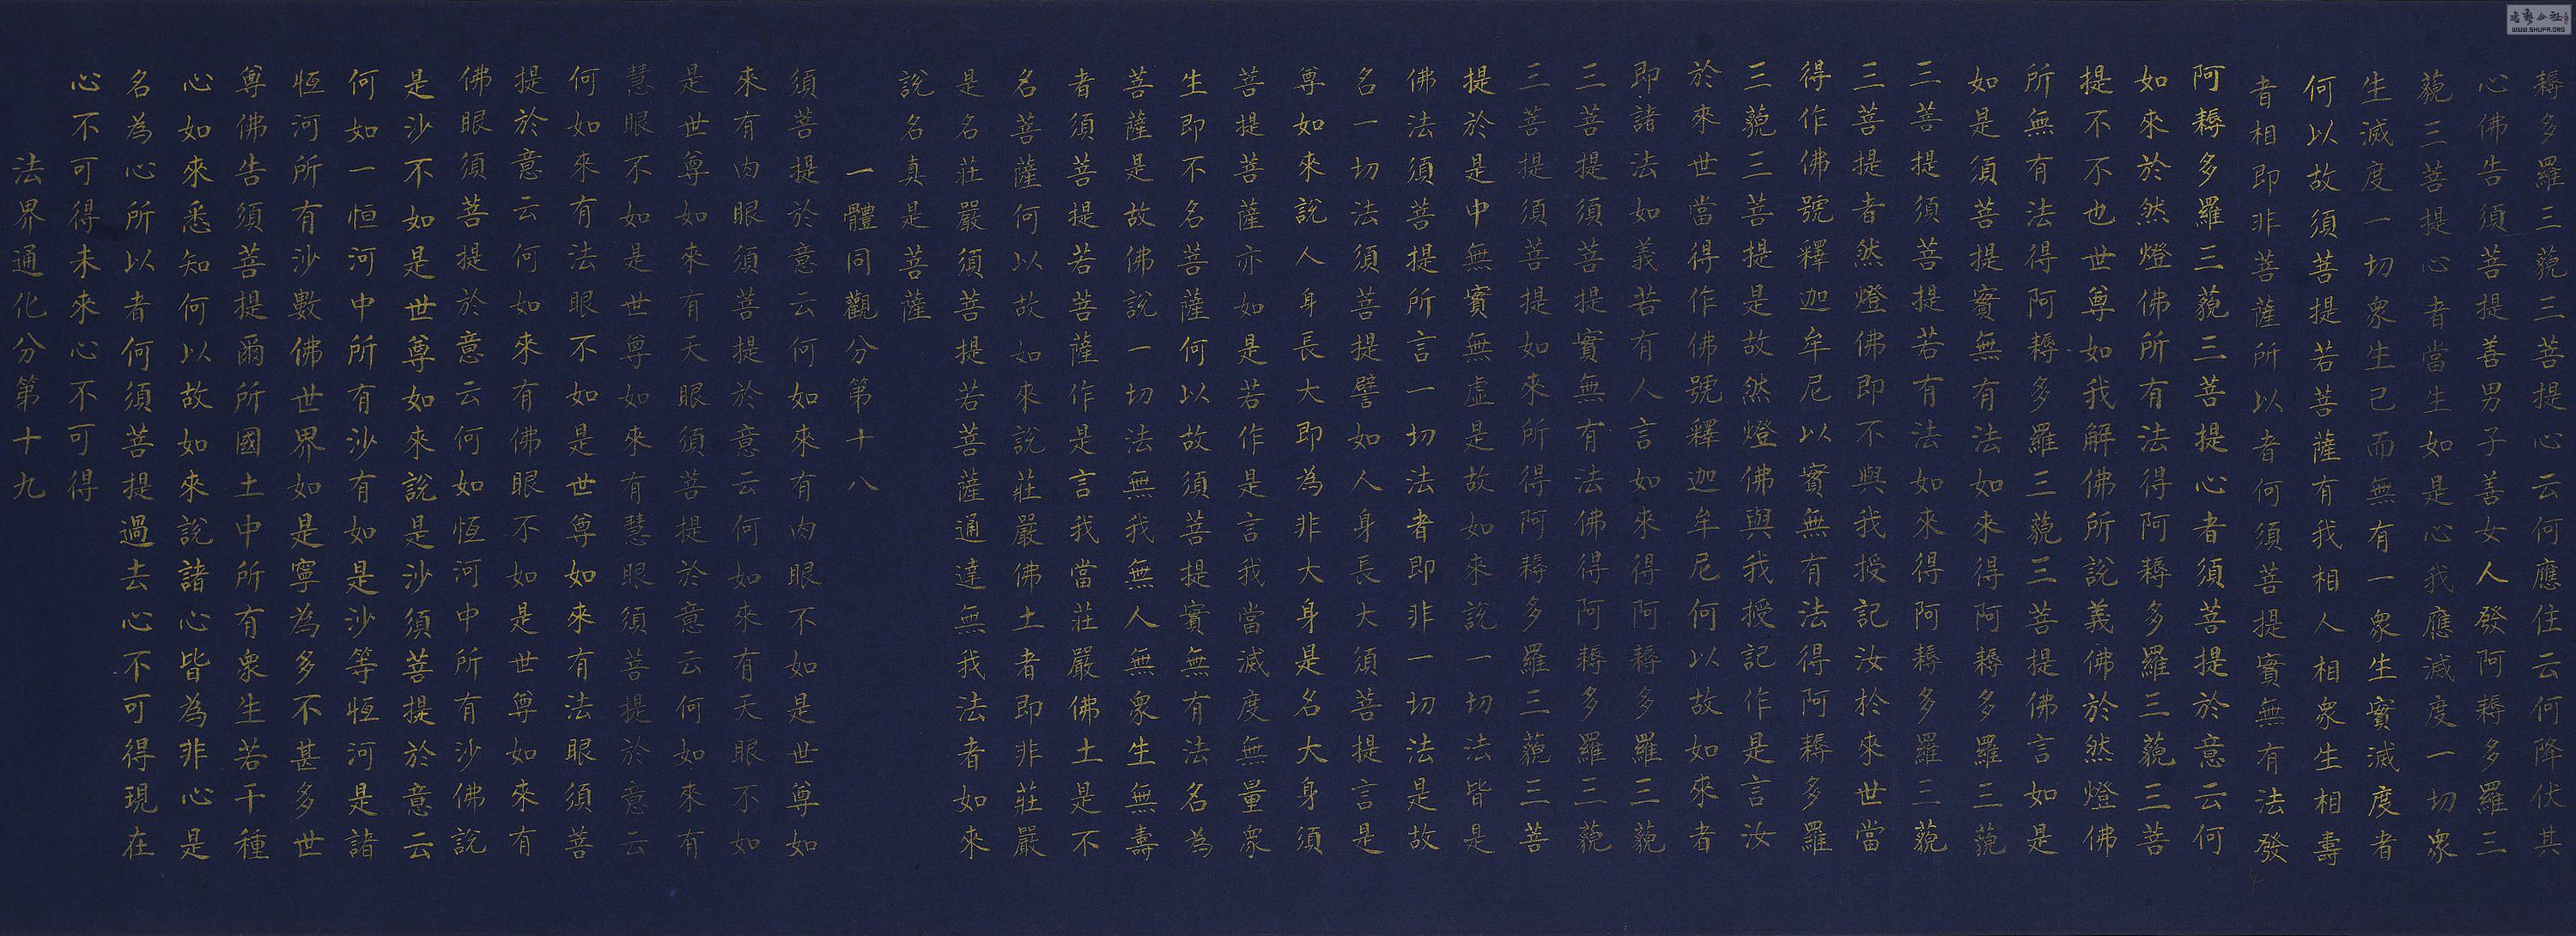 耨多羅三藐三菩提心云何應住云何降伏其
心佛告須菩提善男子善女人發阿耨多羅三
藐三菩提心者當生如是心我應滅度一切眾
生滅度一切眾生已而無有一眾生實滅度者
何以故須菩提若菩薩有我相人相眾生相壽
者相即非菩薩所以者何須菩提實無有法發
阿耨多羅三藐三菩提心者須菩提於意云何
如來於然燈佛所有法得阿耨多羅三藐三菩
提不不也世尊如我解佛所說義佛於然燈佛
所無有法得阿耨多羅三藐三菩提佛言如是
如是須菩提實無有法如來得阿耨多羅三藐
三菩提須菩提若有法如來得阿耨多羅三藐
三菩提者然燈佛即不與我授記汝於來世當
得作佛號釋迦牟尼以實無有法得阿耨多羅
三藐三菩提是故然燈佛與我授記作是言汝
於來世當得作佛號釋迦牟尼何以故如來者
即諸法如義若有人言如來得阿耨多羅三藐
三菩提須菩提實無有法佛得阿耨多羅三藐
三菩提須菩提如來所得阿耨多羅三藐三菩
提於是中無實無虛是故如來說一切法皆是
佛法須菩提所言一切法者即非一切法是故
名一切法須菩提譬如人身長大須菩提言是
尊如來說人身長大即為非大身是名大身須
菩提菩薩亦如是若作是言我當滅度無量眾
生即不名菩薩何以故須菩提實無有法名為
菩薩是故佛說一切法無我無人無眾生無壽
者須菩提若菩薩作是言我當莊嚴佛土是不
名菩薩何以故如來說莊嚴佛土者即非莊嚴
是名莊嚴須菩提若菩薩通達無我法者如來
說名真是菩薩
一體同觀分第十八
須菩提於意云何如來有肉眼不如是世尊如
來有肉眼須菩提於意云何如來有天眼不如
是世尊如來有天眼須菩提於意云何如來有
慧眼不如是世尊如來有慧眼須菩提於意云
何如來有法眼不如是世尊如來有法眼須菩
提於意云何如來有佛眼不如是世尊如來有
佛眼須菩提於意云何如恆河中所有沙佛說
是沙不如是世尊如來說是沙須菩提於意云
何如一恒河中所有沙有如是沙等恆河是諸
恆河所有沙數佛世界如是寧為多不甚多世
尊佛告須菩提爾所國土中所有眾生若干種
心如來悉知何以故如來說諸心皆為非心是
名為心所以者何須菩提過去心不可得現在
心不可得未來心不可得
法界通化分第十九
WWW.SHUFA.ORG